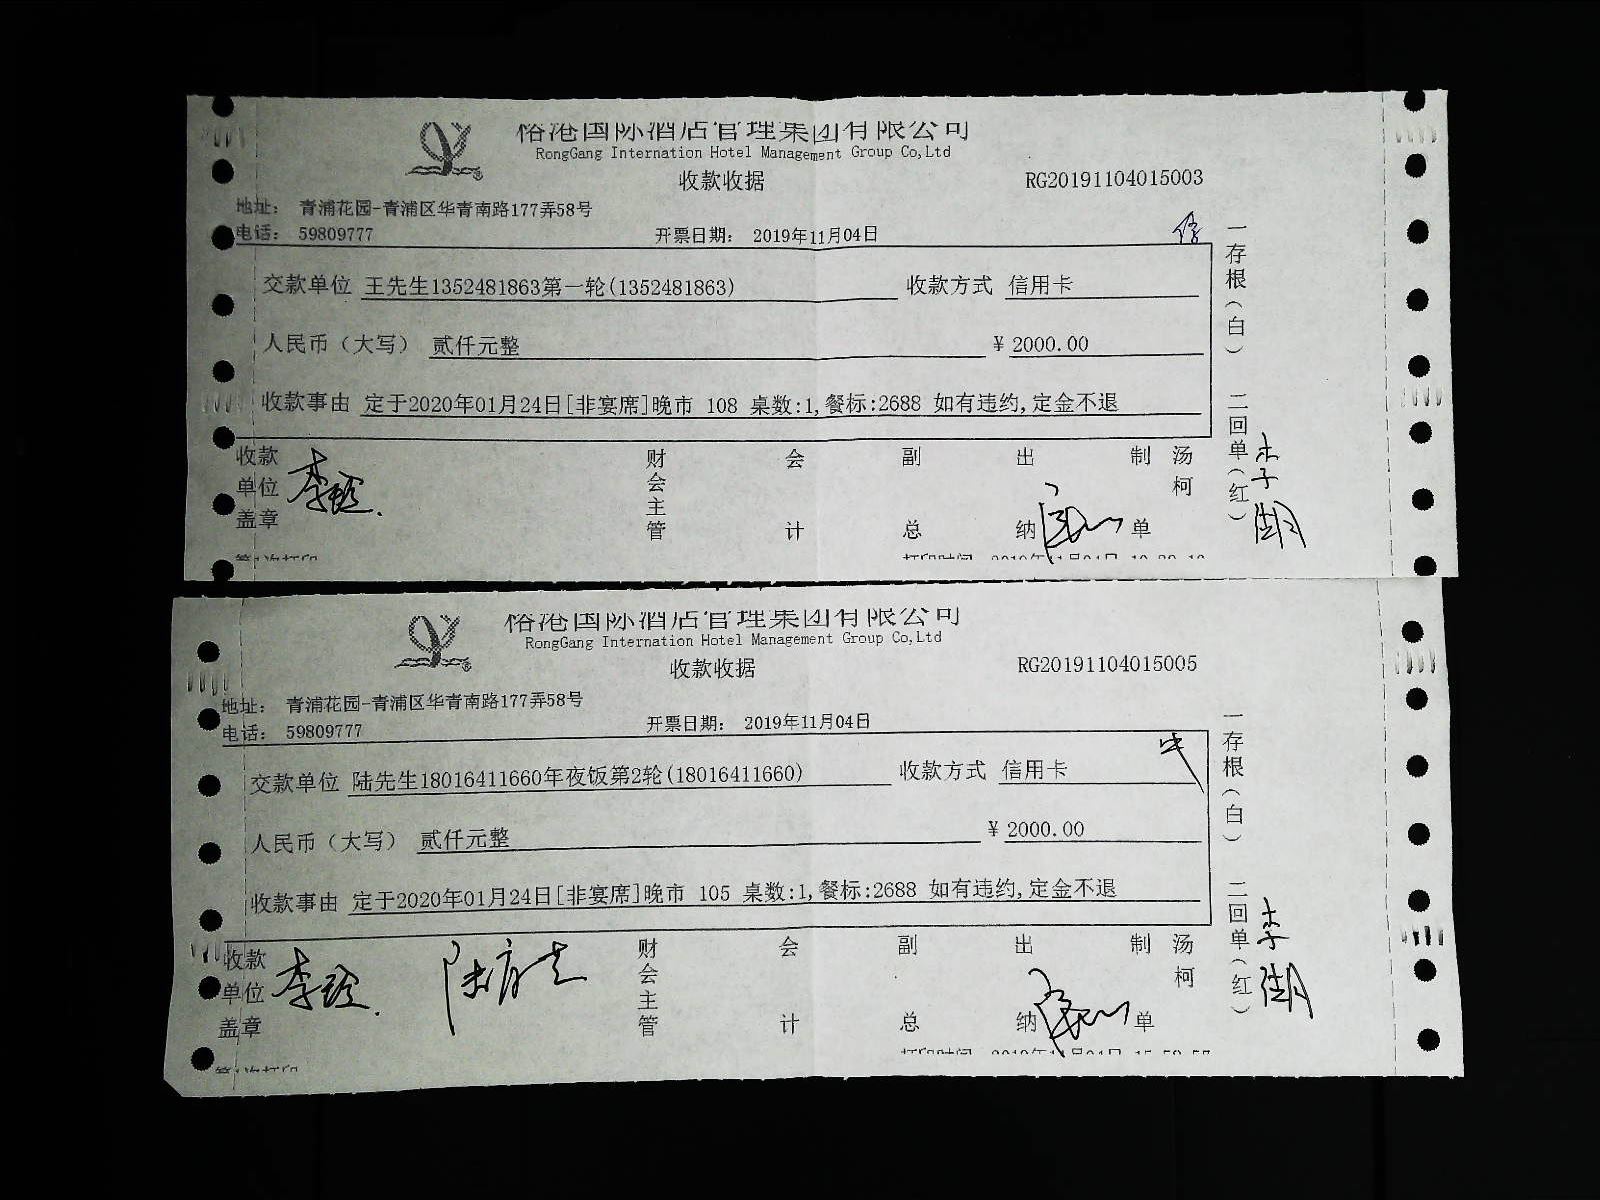 裕港国际酒店管理集团有限公司
RongGang Internation Hotel Management Group Co,Ltd
收款收据 RG20191104015003
地址： 青浦花园-青浦区华青南路177弄58号
电话： 59809777 开票日期： 2019年11月04日
交款单位 王先生1352481863第一轮(1352481863) 收款方式 信用卡
人民币（大写） 贰仟元整 ¥ 2000.00
收款事由 定于2020年01月24日[非宴席]晚市 108 桌数:1,餐标:2688 如有违约,定金不退
收款单位盖章 财会主管 会计 副总 出纳 制单 汤柯
一存根（白） 二回单（红）
第1次打印 打印时间 2019年11月04日
裕港国际酒店管理集团有限公司
RongGang Internation Hotel Management Group Co,Ltd
收款收据 RG20191104015005
地址： 青浦花园-青浦区华青南路177弄58号
电话： 59809777 开票日期： 2019年11月04日
交款单位 陆先生18016411660年夜饭第2轮(18016411660) 收款方式 信用卡
人民币（大写） 贰仟元整 ¥ 2000.00
收款事由 定于2020年01月24日[非宴席]晚市 105 桌数:1,餐标:2688 如有违约,定金不退
收款单位盖章 财会主管 会计 副总 出纳 制单 汤柯
一存根（白） 二回单（红）
第1次打印 打印时间 2019年11月04日